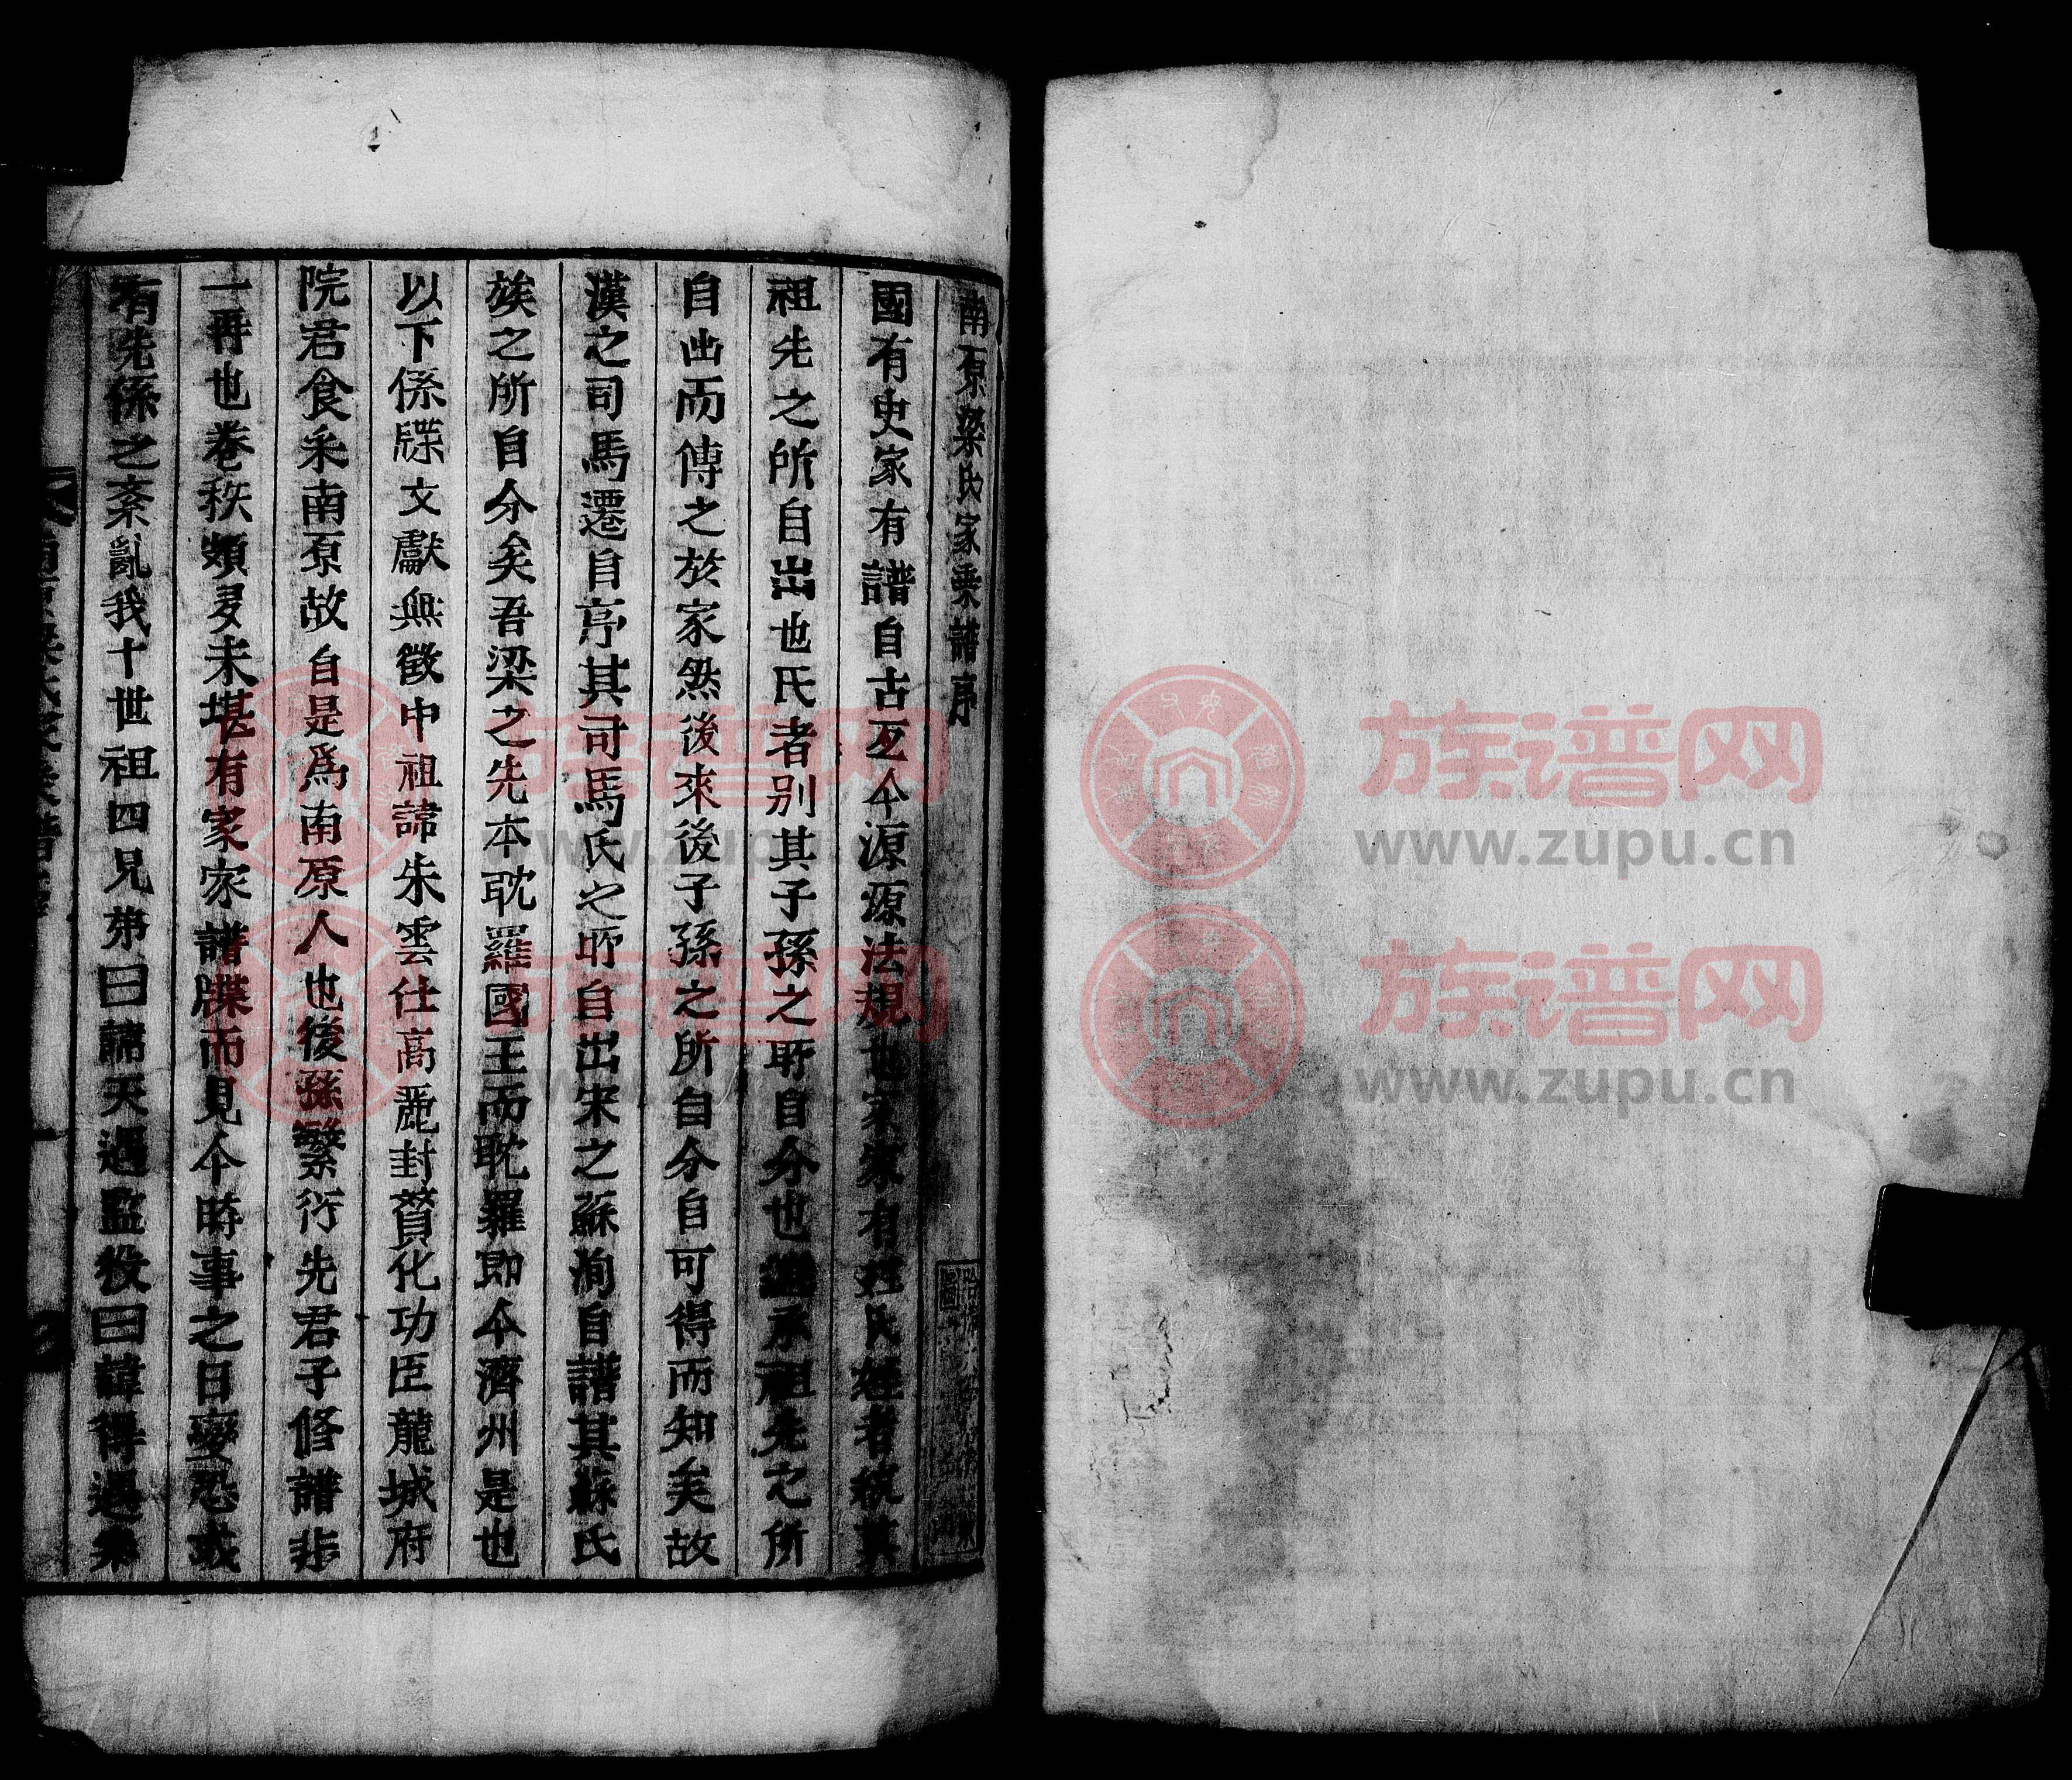 南原梁氏家乘譜序
國有史家有譜自古亙今源源法規也家家有姓氏姓者統其
祖先之所自出也氏者別其子孫之所自分也承祖先之所
自出而傳之於家然後來後子孫之所自分自可得而知矣故
漢之司馬遷自序其司馬氏之所自出宋之蘇洵自譜其蘇氏
族之所自分矣吾梁之先本耽羅國王而耽羅即今濟州是也
以下係牒文獻無徵中祖諱朱雲仕高麗封贊化功臣龍城府
院君食采南原故自是爲南原人也後孫繁衍先君子修譜非
一再也卷秩頗多未堪有家家譜牒而見今時事之日變恐或
有先係之紊亂我十世祖四兄弟曰諱天遇監役曰諱得遇參
族谱网
www.zupu.cn
族谱网
www.zupu.cn
族谱网
www.zupu.cn
族谱网
www.zupu.cn